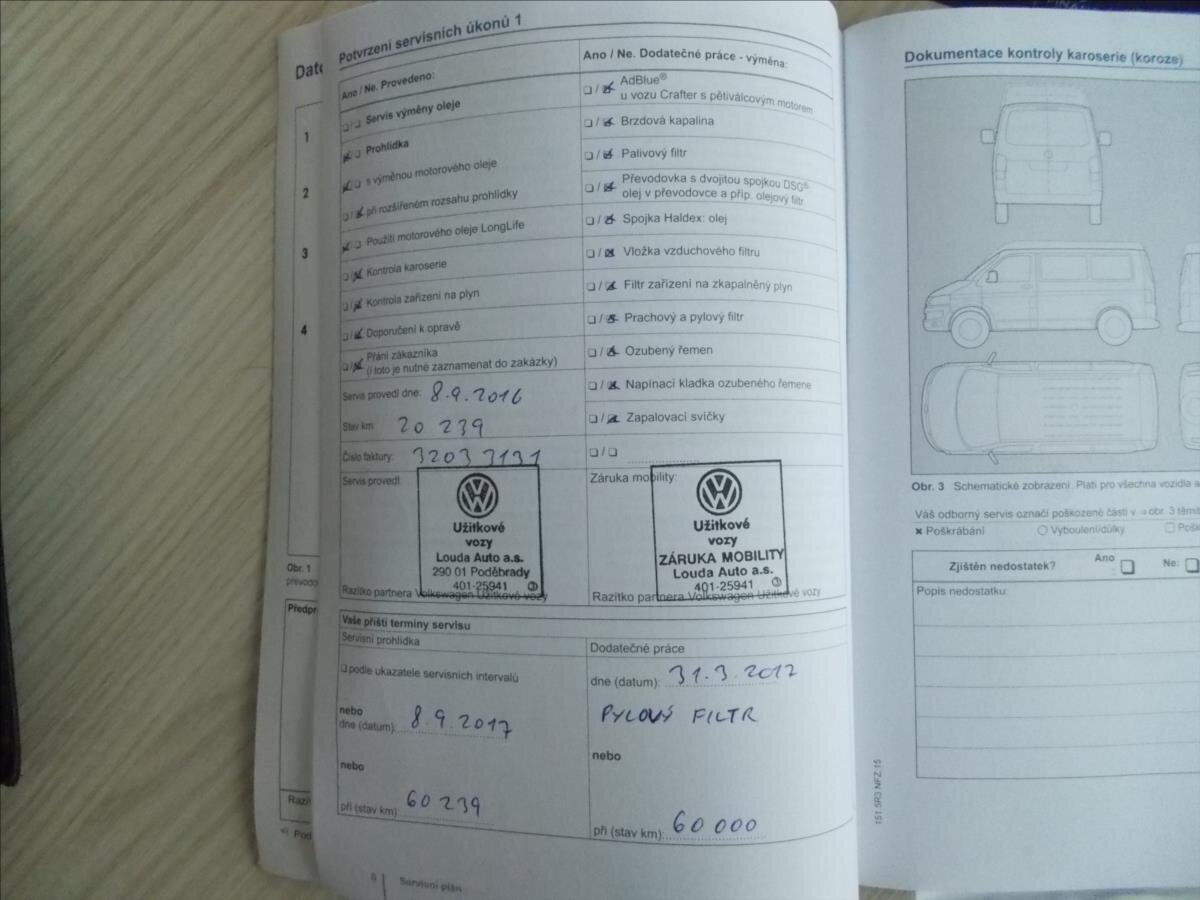 Potvrzení servisních úkonů 1
Ano / Ne. Provedeno:
❏/❏ Servis výměny oleje
❏/❏ Prohlídka
❏/❏ s výměnou motorového oleje
❏/❏ při rozšířeném rozsahu prohlídky
❏/❏ Použití motorového oleje LongLife
❏/❏ Kontrola karoserie
❏/❏ Kontrola zařízení na plyn
❏/❏ Doporučení k opravě
❏/❏ Přání zákazníka
(i toto je nutné zaznamenat do zakázky)
Servis provedl dne: 8.9.2016
Stav km: 20 239
Číslo faktury: 32033131
Servis provedl:
Užitkové
vozy
Louda Auto a.s.
290 01 Poděbrady
401-25941 3
Razítko partnera Volkswagen Užitkové vozy
Ano / Ne. Dodatečné práce - výměna:
❏/❏ AdBlue®
u vozu Crafter s pětiválcovým motorem
❏/❏ Brzdová kapalina
❏/❏ Palivový filtr
❏/❏ Převodovka s dvojitou spojkou DSG®
olej v převodovce a příp. olejový filtr
❏/❏ Spojka Haldex: olej
❏/❏ Vložka vzduchového filtru
❏/❏ Filtr zařízení na zkapalněný plyn
❏/❏ Prachový a pylový filtr
❏/❏ Ozubený řemen
❏/❏ Napínací kladka ozubeného řemene
❏/❏ Zapalovací svíčky
❏/❏
Záruka mobility:
Užitkové
vozy
ZÁRUKA MOBILITY
Louda Auto a.s.
401-25941 3
Razítko partnera Volkswagen Užitkové vozy
Vaše příští termíny servisu
Servisní prohlídka
❏ podle ukazatele servisních intervalů
nebo
dne (datum): 8.9.2017
nebo
při (stav km): 60 239
Dodatečné práce
dne (datum): 31.3.2017
PYLOVÝ FILTR
nebo
při (stav km): 60 000
6 Servisní plán
Dat
1
2
3
4
Obr. 1
převodo
Předpr
Razí
Pod
Dokumentace kontroly karoserie (koroze)
Obr. 3 Schematické zobrazení. Platí pro všechna vozidla a
Váš odborný servis označí poškozené části v ⇒ obr. 3 těmit
✖ Poškrábání ○ Vyboulení/důlky ❏ Poš
Zjištěn nedostatek? Ano : ❏ Ne: ❏
Popis nedostatku:
151.5R3.NFZ.15